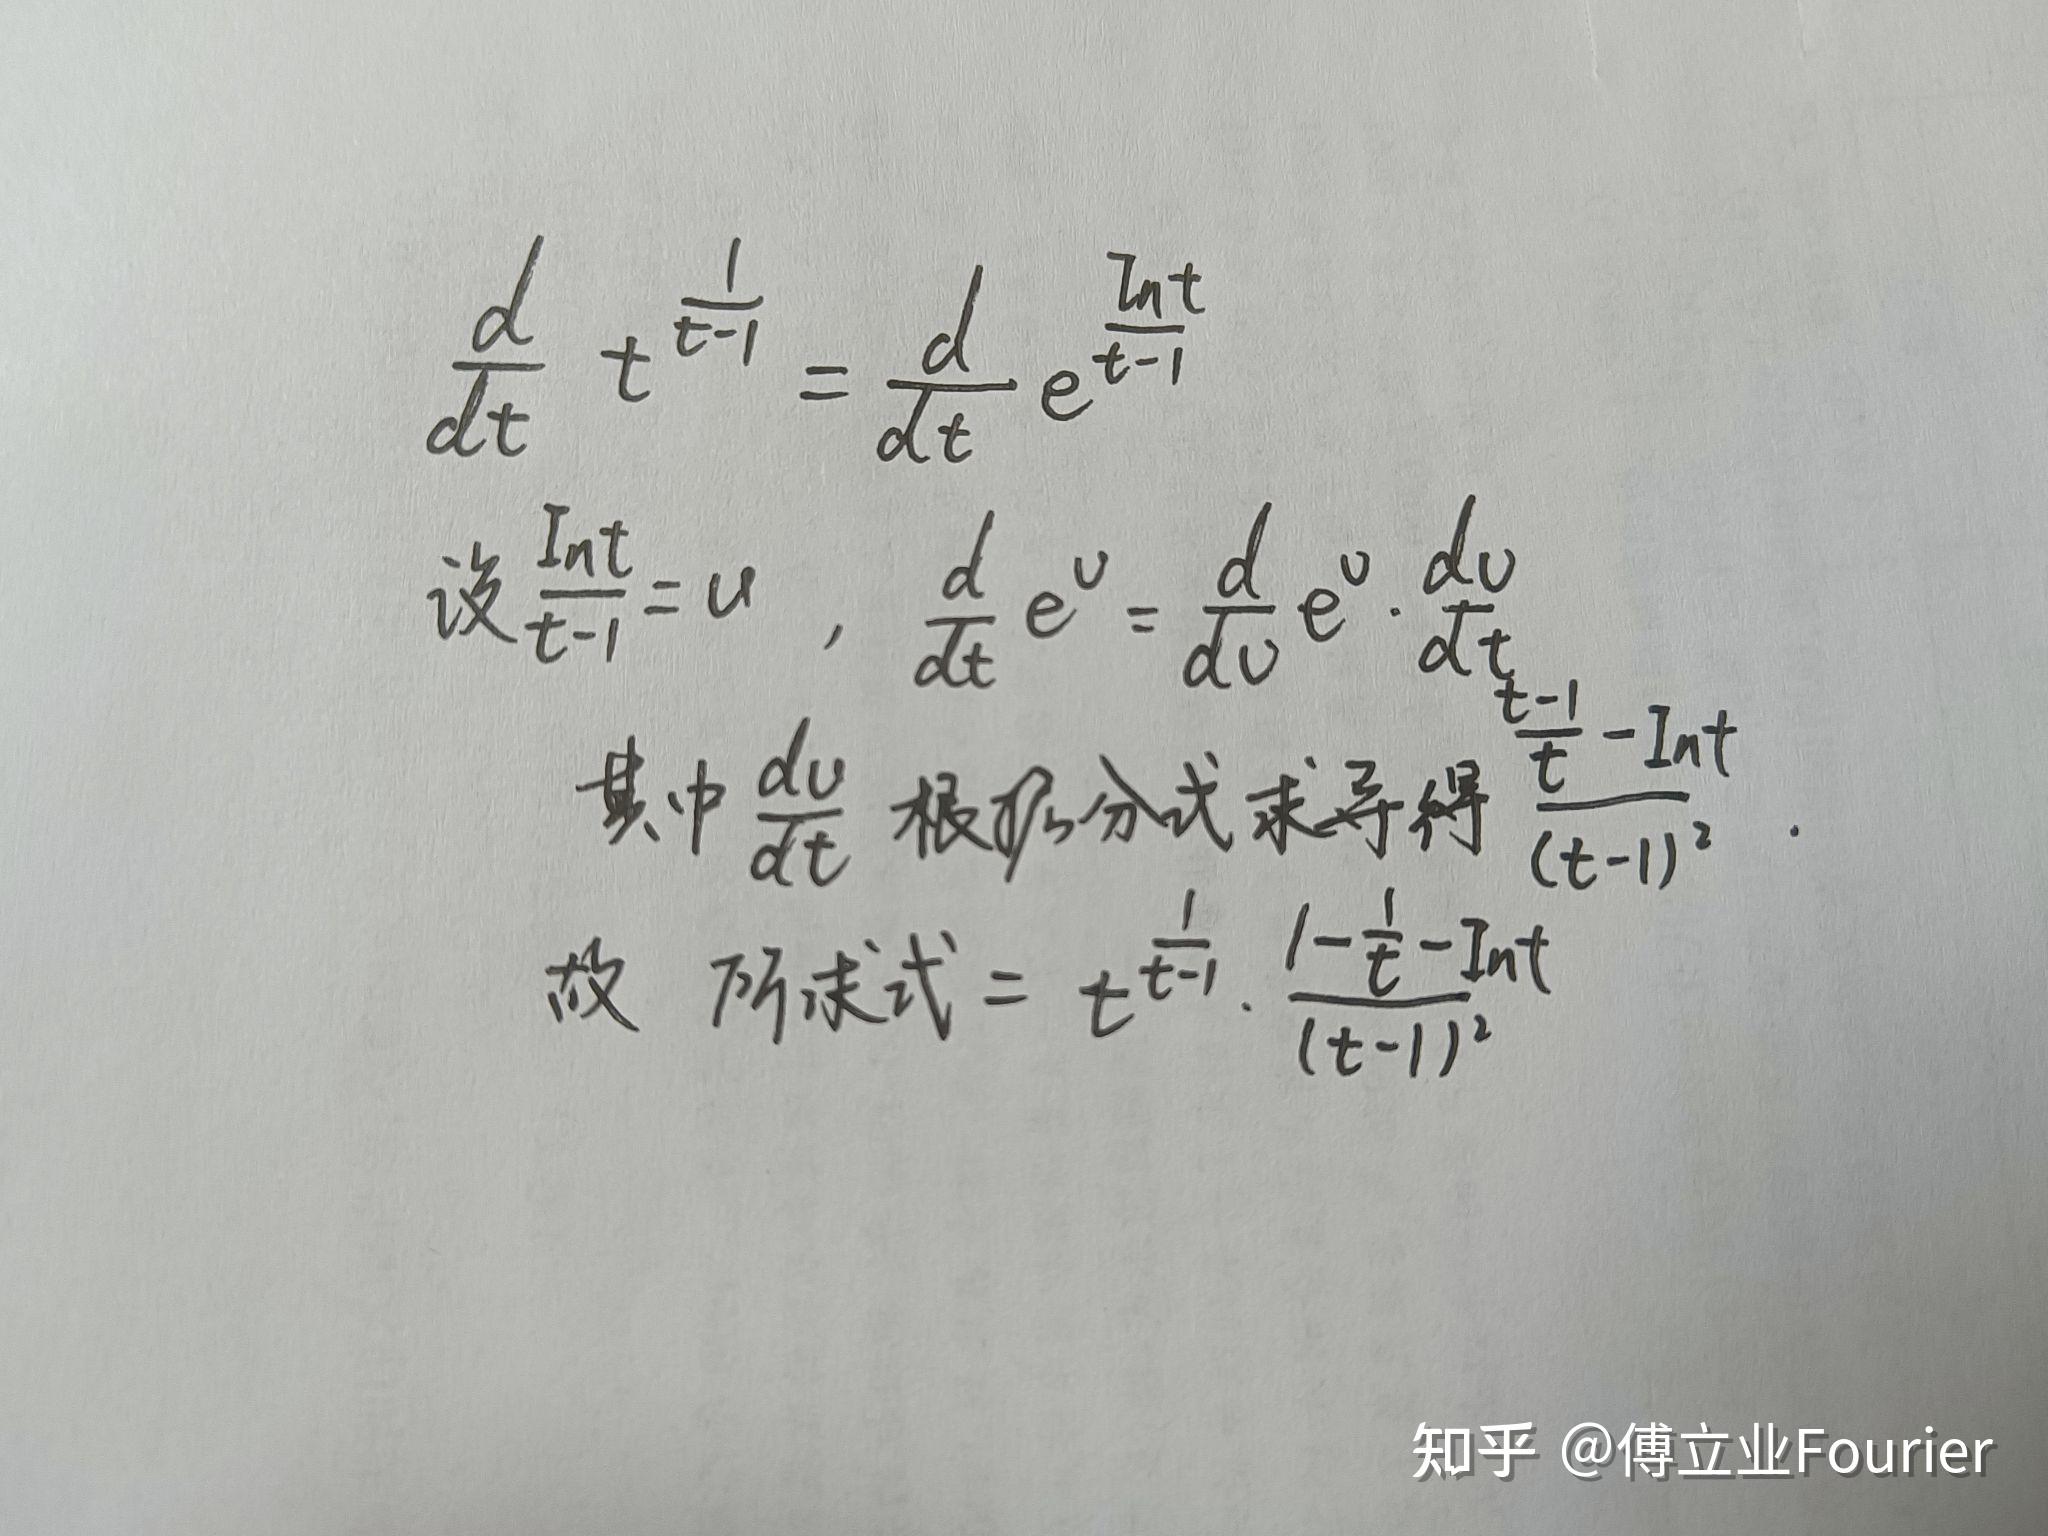 d/dt t^(1/(t-1)) = d/dt e^(Int/(t-1))
设 Int/(t-1) = u , d/dt e^u = d/du e^u · du/dt
其中 du/dt 根据分式求导得 ((t-1)/t - Int)/(t-1)² .
故 所求式 = t^(1/(t-1)) · (1 - 1/t - Int)/(t-1)²
知乎 @傅立业Fourier